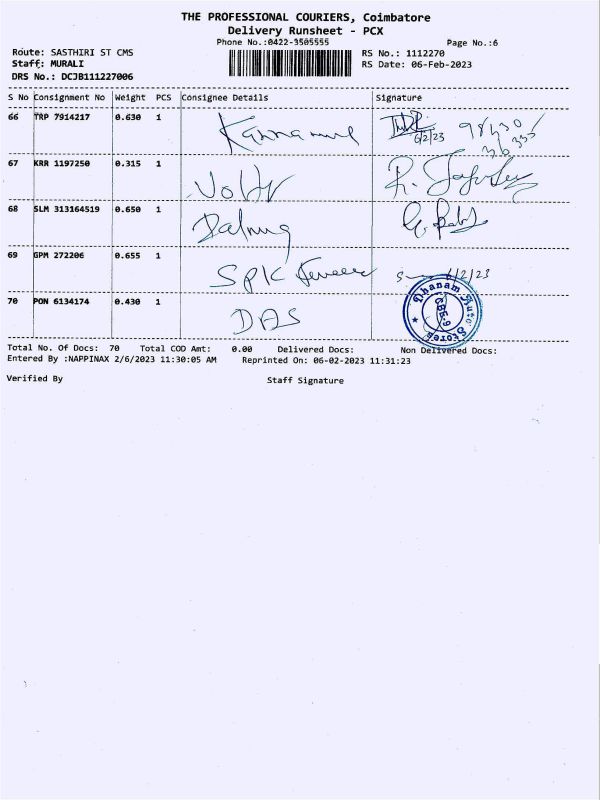 THE PROFESSIONAL COURIERS, Coimbatore
Delivery Runsheet - PCX
Phone No.:0422-3505555
Page No.:6
Route: SASTHIRI ST CMS
RS No.: 1112270
Staff: MURALI
RS Date: 06-Feb-2023
DRS No.: DCJB111227006
S No Consignment No Weight PCS Consignee Details Signature
66 TRP 7914217 0.630 1
6/2/23
67 KRR 1197250 0.315 1
68 SLM 313164519 0.650 1
69 GPM 272206 0.655 1 SPK
6/2/23
70 PON 6134174 0.430 1 DAS
Dhanam Auto Stores
CBE-9
Total No. Of Docs: 70 Total COD Amt: 0.00 Delivered Docs: Non Delivered Docs:
Entered By :NAPPINAX 2/6/2023 11:30:05 AM Reprinted On: 06-02-2023 11:31:23
Verified By Staff Signature